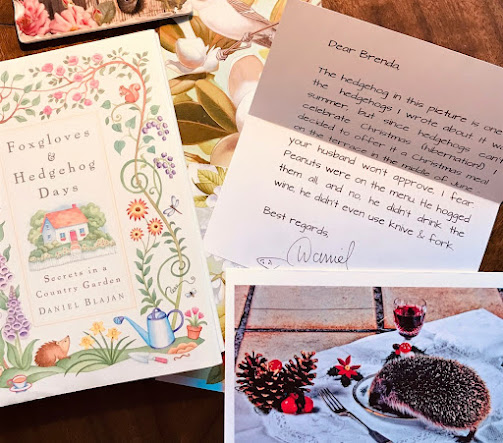 Foxgloves
&
Hedgehog
Days
Secrets in a
Country Garden
DANIEL BLAJAN
Dear Brenda,
The hedgehog in this picture is one
the hedgehogs I wrote about it wa
summer, but since hedgehogs can
celebrate Christmas (hibernation!) I
decided to offer it a Christmas meal
on the terrace in the middle of June
your husband won't approve, I fear.
Peanuts were on the menu. He hogged
them all, and no, he didn't drink the
wine, he didn't even use knive & fork.
Best regards,
Daniel